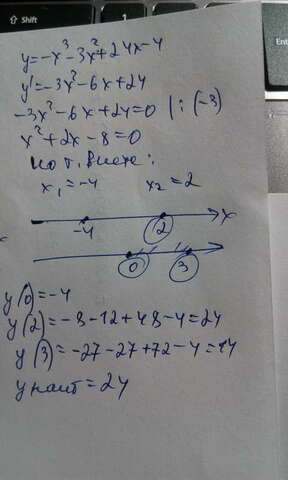 Shift
y=-x³-3x²+24x-4
y'=-3x²-6x+24
-3x²-6x+24=0 |:(-3)
x²+2x-8=0
по т. Виета:
x₁=-4 x₂=2
-4 2 x
0 3
y(0)=-4
y(2)=-8-12+48-4=24
y(3)=-27-27+72-4=14
y наиб=24